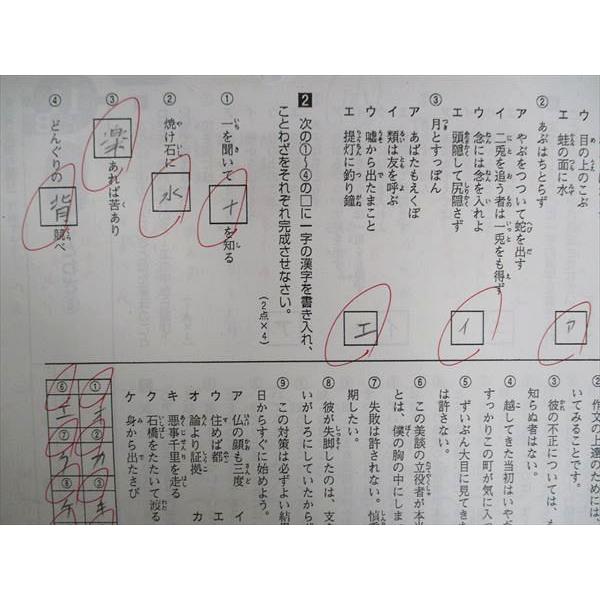 ウ 目の上のこぶ
エ 蛙の面に水
② あぶはちとらず
ア やぶをつついて蛇を出す
イ 二兎を追う者は一兎をも得ず
ウ 念には念を入れよ
エ 頭隠して尻隠さず
③ 月とすっぽん
ア あばたもえくぼ
イ 類は友を呼ぶ
ウ 嘘から出たまこと
エ 提灯に釣り鐘
ア
イ
エ
2 次の①~④の□に一字の漢字を書き入れ、
ことわざをそれぞれ完成させなさい。
(2点×4)
① 一を聞いて十を知る
② 焼け石に水
③ 楽あれば苦あり
④ どんぐりの背競べ
② 作文の上達のためには、
いてみることです。
③ 彼の不正については、
知らぬ者はない。
④ 越してきた当初はいやだ
すっかりこの町が気に入
⑤ ずいぶん大目に見てきた
は許さない。
⑥ この美談の立役者が本当
とは、僕の胸の中にしま
⑦ 失敗は許されない。慎重
期したい。
⑧ 彼が失脚したのは、支
いがしろにしていたから
⑨ この対策は必ずよい結果
日からすぐに始めよう。
ア 仏の顔も三度 イ
ウ 住めば都 エ
オ 論より証拠 カ
キ 悪事千里を走る
ク 石橋をたたいて渡る
ケ 身から出たさび
① オ
② カ
③ キ
⑥ エ
⑦ ク
⑧ ケ